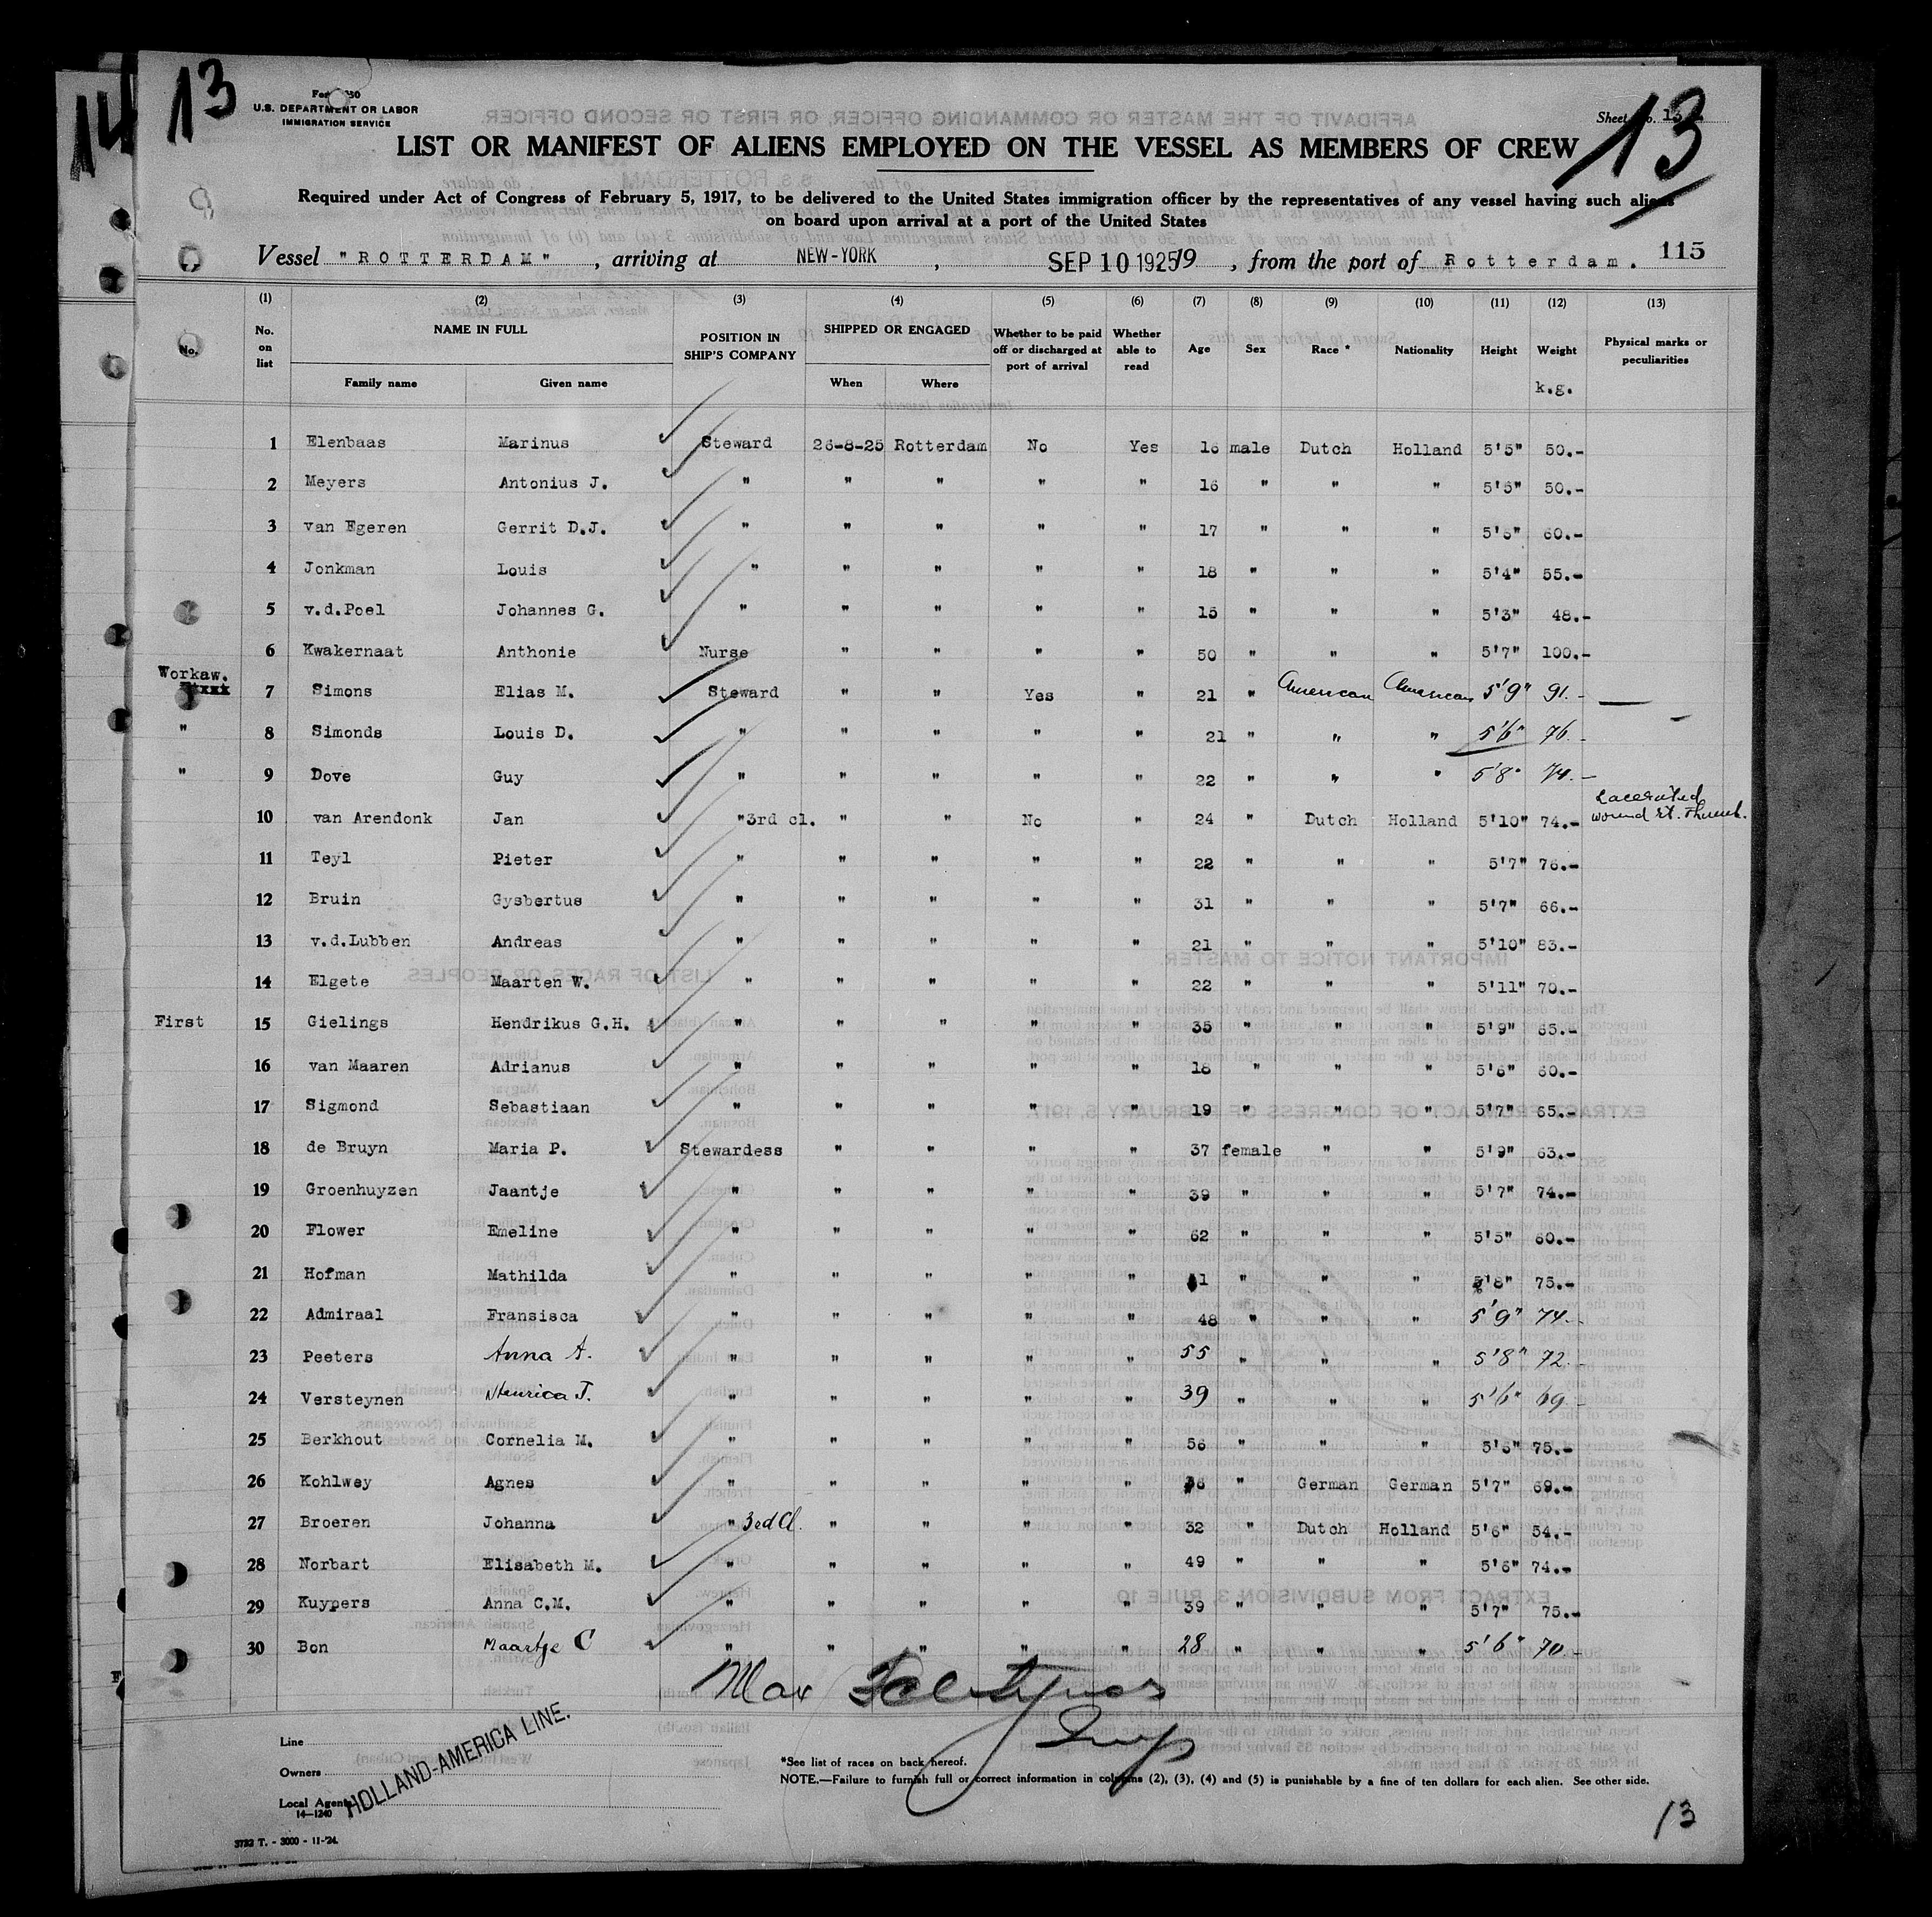 13
14
13
U.S. DEPARTMENT OR LABOR
IMMIGRATION SERVICE
Sheet No. 13
LIST OR MANIFEST OF ALIENS EMPLOYED ON THE VESSEL AS MEMBERS OF CREW
Required under Act of Congress of February 5, 1917, to be delivered to the United States immigration officer by the representatives of any vessel having such aliens
on board upon arrival at a port of the United States
Vessel "ROTTERDAM", arriving at NEW-YORK, SEP 10 1925 19 , from the port of Rotterdam. 115
(1) (2) (3) (4) (5) (6) (7) (8) (9) (10) (11) (12) (13)
No. No. on list NAME IN FULL Family name Given name POSITION IN SHIP'S COMPANY SHIPPED OR ENGAGED When Where Whether to be paid off or discharged at port of arrival Whether able to read Age Sex Race * Nationality Height Weight k.g. Physical marks or peculiarities
1 Elenbaas Marinus Steward 26-8-25 Rotterdam No Yes 16 male Dutch Holland 5'5" 50.-
2 Meyers Antonius J. " " " " " 16 " " " 5'6" 50.-
3 van Egeren Gerrit D.J. " " " " " 17 " " " 5'6" 60.-
4 Jonkman Louis " " " " " 18 " " " 5'4" 55.-
5 v.d.Poel Johannes G. " " " " " 15 " " " 5'3" 48.-
6 Kwakernaat Anthonie Nurse " " " " 50 " " " 5'7" 100.-
Workaw. 7 Simons Elias M. Steward " " Yes " 21 " American American 5'9" 91.-
" 8 Simonds Louis D. " " " " " 21 " " " 5'6" 76.-
" 9 Dove Guy " " " " " 22 " " " 5'8" 74.-
10 van Arendonk Jan "3rd cl. " " No " 24 " Dutch Holland 5'10" 74.- Lacerated wound rt. thumb.
11 Teyl Pieter " " " " " 22 " " " 5'7" 76.-
12 Bruin Gysbertus " " " " " 31 " " " 5'7" 66.-
13 v.d.Lubben Andreas " " " " " 21 " " " 5'10" 83.-
14 Elgete Maarten W. " " " " " 22 " " " 5'11" 70.-
First 15 Gielings Hendrikus G.H. " " " " " 35 " " " 5'9" 65.-
16 van Maaren Adrianus " " " " " 18 " " " 5'6" 60.-
17 Sigmond Sebastiaan " " " " " 19 " " " 5'7" 65.-
18 de Bruyn Maria P. Stewardess " " " " 37 female " " 5'9" 63.-
19 Groenhuyzen Jaantje " " " " " 39 " " " 5'7" 74.-
20 Flower Emeline " " " " " 62 " " " 5'5" 60.-
21 Hofman Mathilda " " " " " " " " 5'8" 75.-
22 Admiraal Fransisca " " " " " 48 " " " 5'9" 74.-
23 Peeters Anna A. " " " " " 55 " " " 5'8" 72.-
24 Versteynen Henrica J. " " " " " 39 " " " 5'6" 69.-
25 Berkhout Cornelia M. " " " " " 56 " " " 5'6" 75.-
26 Kohlwey Agnes " " " " " " German German 5'7" 69.-
27 Broeren Johanna " 3rd Cl. " " " " 32 " Dutch Holland 5'6" 54.-
28 Norbart Elisabeth M. " " " " " 49 " " " 5'6" 74.-
29 Kuypers Anna C.M. " " " " " 39 " " " 5'7" 75.-
30 Bon Maartje C " " " " " 28 " " " 5'6" 70.-
Max
Insp
Line
Owners
Local Agents
HOLLAND-AMERICA LINE.
14-1240
*See list of races on back hereof.
NOTE.—Failure to furnish full or correct information in columns (2), (3), (4) and (5) is punishable by a fine of ten dollars for each alien. See other side.
3722 T. - 3000 - 11-'24.
13